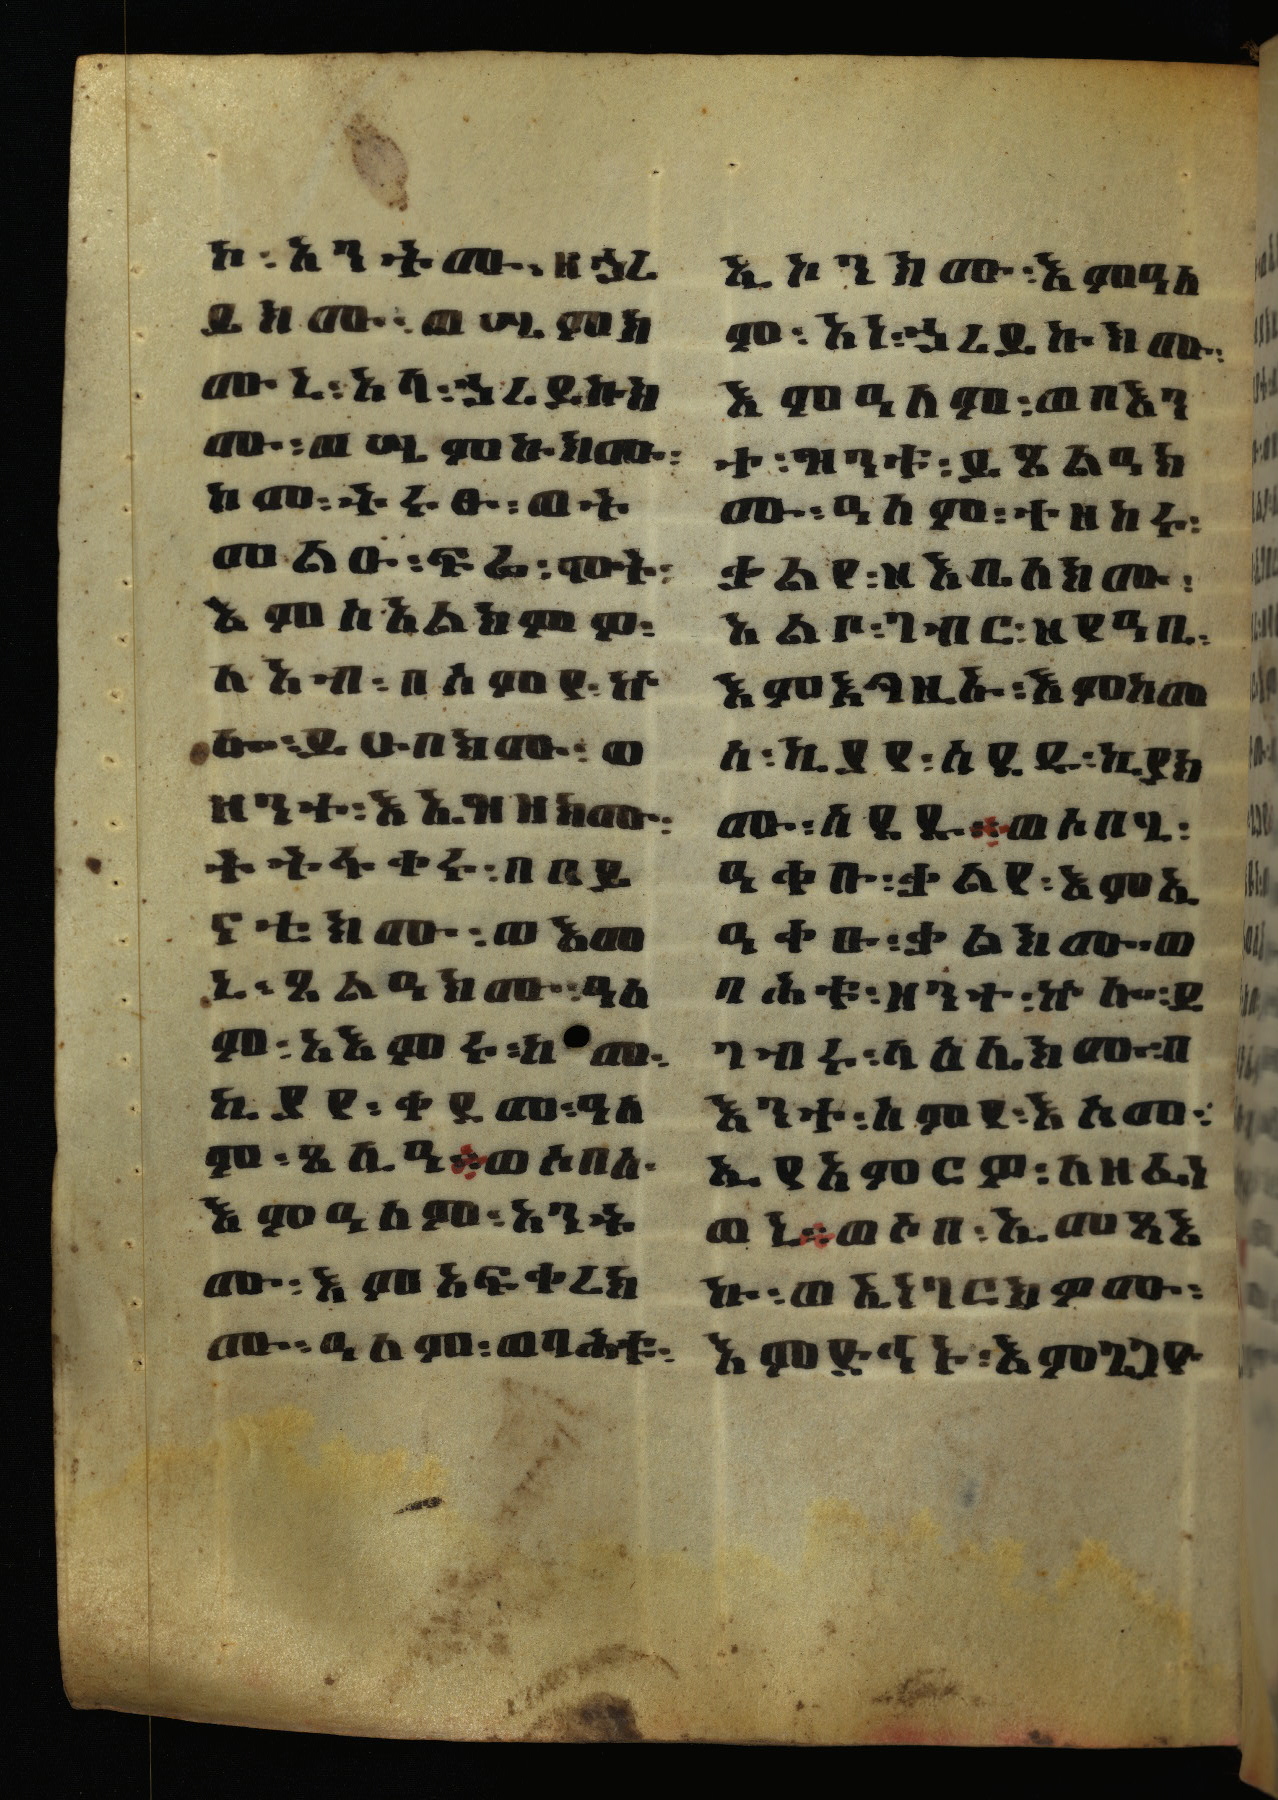 ኮ፡ አንትሙ፡ ዘኃረ
ይክሙ፡ ወሤምክ
ሙኒ፡ አላ፡ ኃረይኩክ
ሙ፡ ወሤምኩክሙ፡
ከመ፡ ትሩፁ፡ ወት
መልዑ፡ ፍሬ፡
እምሰአልክምዎ፡
ለአብ፡ በስምየ፡ ኵ
ሎ፡ ይሁበክሙ፡ ወ
ዘንተ፡ እኤዝዘክሙ፡
ትትፋቀሩ፡ በበይ
ናቲክሙ፡ ወእመ
ኒ፡ ጸልዓክሙ፡ ዓለ
ም፡ አእምሩ፡ ከመ፡
ኪያየ፡ ቀደመ፡ ዓለ
ም፡ ጸሊዓ። ወሶበሰ፡
እምዓለም፡ አንት
ሙ፡ እምአፍቀረክ
ሙ፡ ዓለም፡ ወባሕቱ፡
ኢኮንክሙ፡ እምዓለ
ም፡ አነ፡ ኃረይኩክሙ፡
እምዓለም፡ ወበእን
ተ፡ ዝንቱ፡ ይጸልዓክ
ሙ፡ ዓለም፡ ተዘከሩ፡
ቃልየ፡ ዘእቤለክሙ፡
አልቦ፡ ገብር፡ ዘየዓቢ፡
እምእግዚኡ፡ እምከመ
ሰ፡ ኪያየ፡ ሰደዱ፡ ኪያክ
ሙ፡ ሰደዱ። ወሶበኒ፡
ዓቀቡ፡ ቃልየ፡ እምኢ
ዓቀቡ፡ ቃለክሙ፡ ወ
ባሕቱ፡ ዘንተ፡ ኵሎ፡ ይ
ገብሩ፡ ላዕሌክሙ፡ በ
እንተ፡ ስምየ፡ እስመ፡
ኢየአምርዎ፡ ለዘፈነ
ወኒ። ወሶበ፡ ኢመጻእ
ኩ፡ ወኢነገርክዎሙ፡
እምድኅኑ፡ እምጌጋዮ